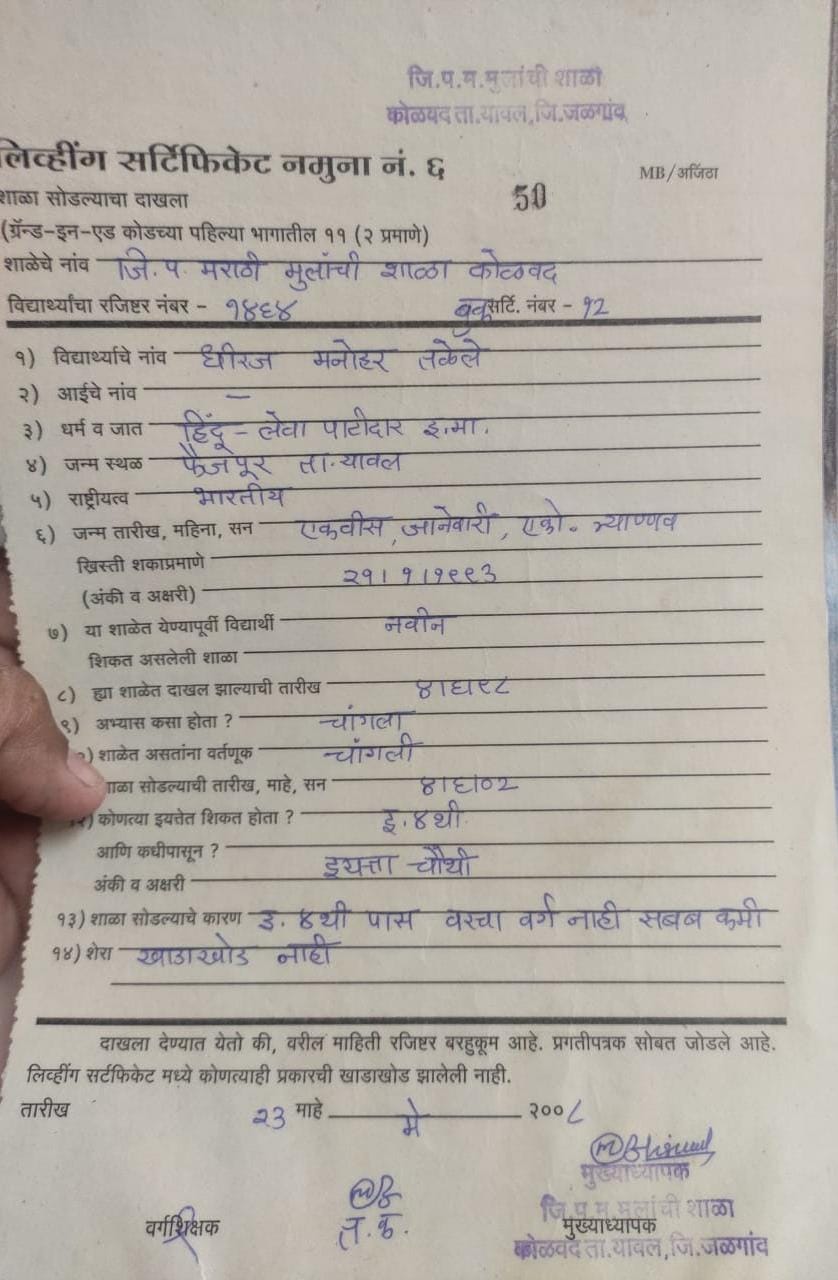 जि.प.म.मुलांची शाळा
कोळवद ता.यावल,जि.जळगांव
लिव्हींग सर्टिफिकेट नमुना नं. ६
MB/अजिंठा
शाळा सोडल्याचा दाखला
50
(ग्रॅन्ड-इन-एड कोडच्या पहिल्या भागातील ११ (२ प्रमाणे)
शाळेचे नांव जि. प. मराठी मुलांची शाळा कोळवद
विद्यार्थ्यांचा रजिष्टर नंबर - १४६४ बुक सर्टि. नंबर - १२
१) विद्यार्थ्याचे नांव धीरज मनोहर तकेले
२) आईचे नांव —
३) धर्म व जात हिंदू - लेवा पाटीदार इ.मा.
४) जन्म स्थळ फैजपूर ता. यावल
५) राष्ट्रीयत्व भारतीय
६) जन्म तारीख, महिना, सन एकवीस, जानेवारी, एको. त्र्याण्णव
ख्रिस्ती शकाप्रमाणे
२१।१।१९९३
(अंकी व अक्षरी)
७) या शाळेत येण्यापूर्वी विद्यार्थी नवीन
शिकत असलेली शाळा
८) ह्या शाळेत दाखल झाल्याची तारीख ४।६।९८
९) अभ्यास कसा होता ? चांगला
) शाळेत असतांना वर्तणूक चांगली
शाळा सोडल्याची तारीख, माहे, सन ४।६।०२
१२) कोणत्या इयत्तेत शिकत होता ? इ. ४थी
आणि कधीपासून ?
इयत्ता चौथी
अंकी व अक्षरी
१३) शाळा सोडल्याचे कारण इ. ४थी पास वरचा वर्ग नाही सबब कमी
१४) शेरा खाडाखोड नाही
दाखला देण्यात येतो की, वरील माहिती रजिष्टर बरहुकूम आहे. प्रगतीपत्रक सोबत जोडले आहे.
लिव्हींग सर्टफिकेट मध्ये कोणत्याही प्रकारची खाडाखोड झालेली नाही.
तारीख २३ माहे मे २००८
मुख्याध्यापक
जि.प.म.मुलांची शाळा
वर्गशिक्षक त.क. मुख्याध्यापक
कोळवद ता.यावल,जि.जळगांव